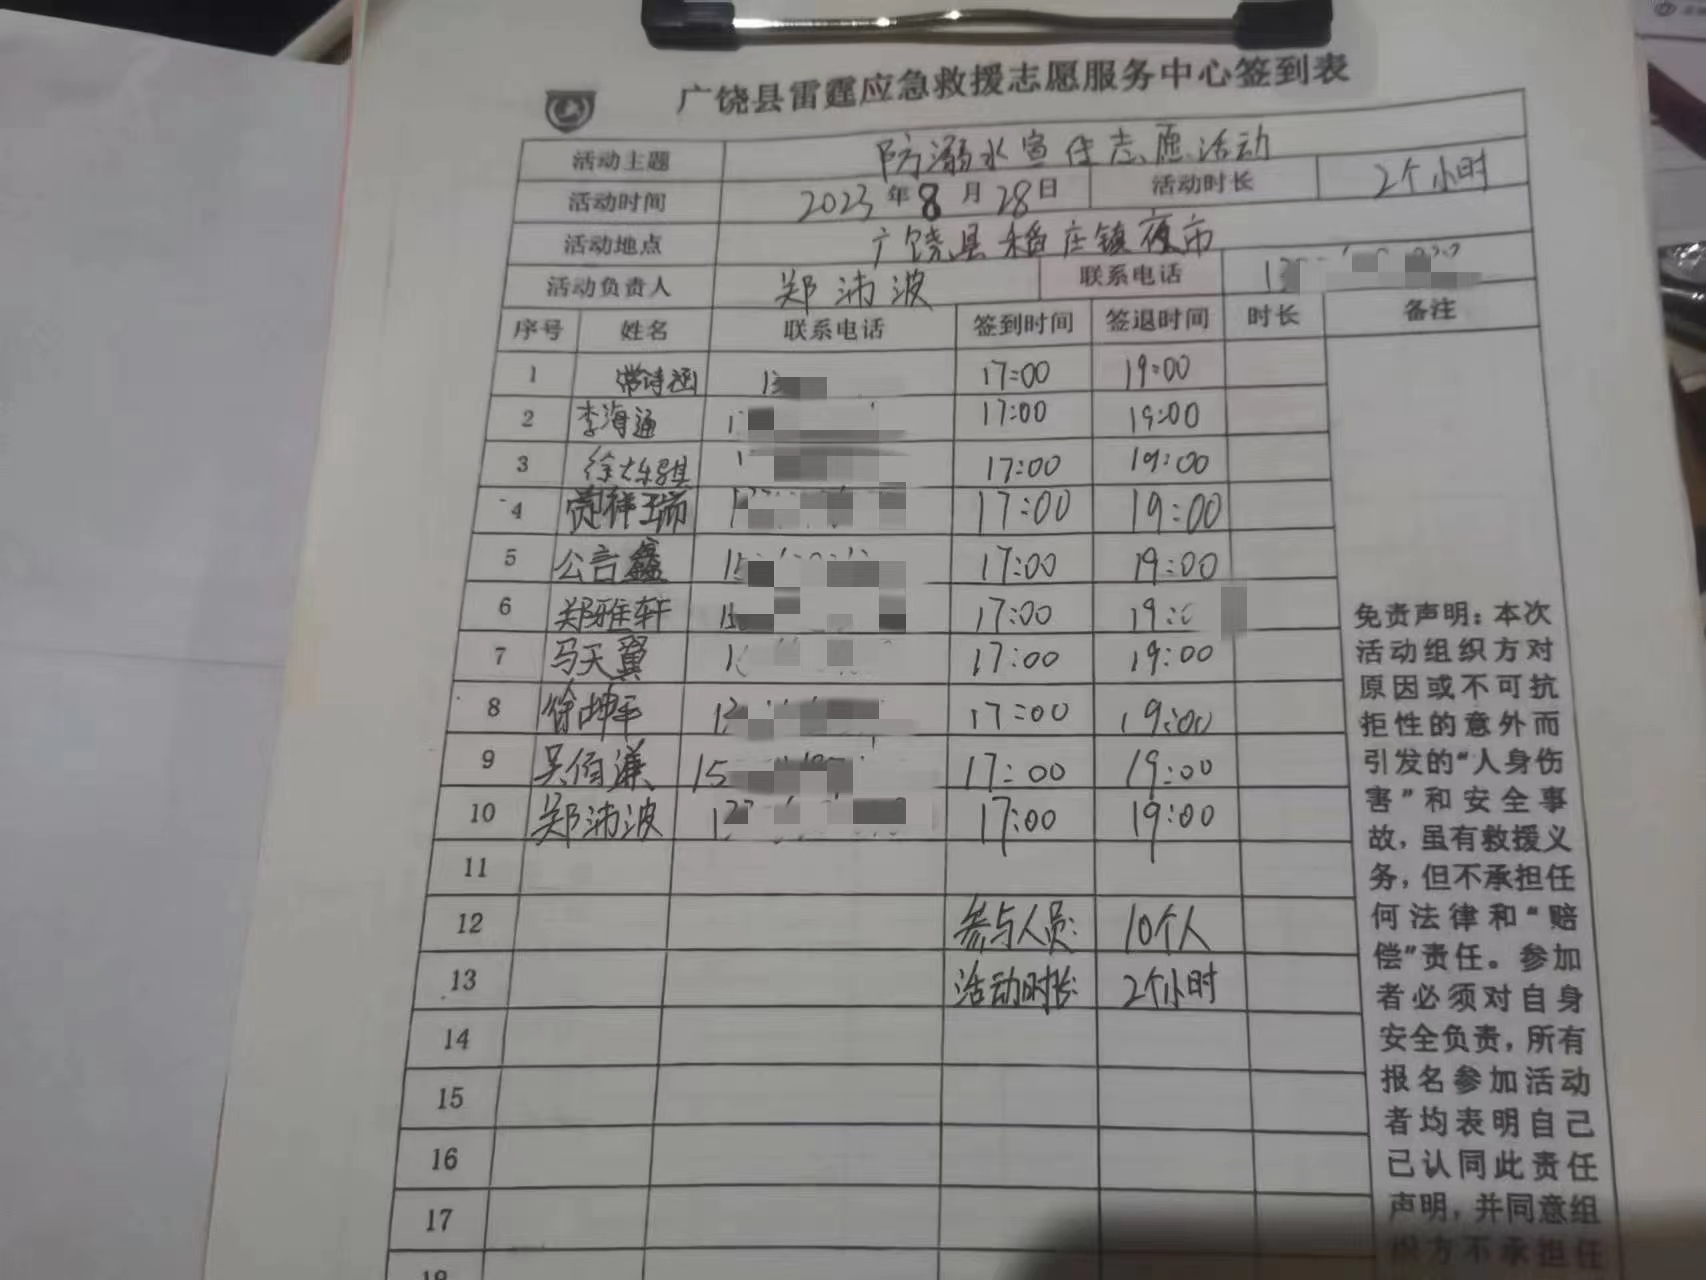 广饶县雷霆应急救援志愿服务中心签到表
活动主题 防溺水宣传志愿活动
活动时间 2023年8月28日 活动时长 2个小时
活动地点 广饶县稻庄镇夜市
活动负责人 郑沛波 联系电话
序号 姓名 联系电话 签到时间 签退时间 时长 备注
1 常诗涵 17:00 19:00
2 李海通 17:00 19:00
3 17:00 19:00
4 17:00 19:00
5 公言鑫 17:00 19:00
6 郑雅轩 17:00
7 马天翼 17:00 19:00
8 徐坤平 17:00 19:00
9 吴佰谦 17:00 19:00
10 郑沛波 17:00 19:00
11
12 参与人员: 10个人
13 活动时长: 2个小时
14
15
16
17
18
免责声明：本次
活动组织方对
原因或不可抗
拒性的意外而
引发的“人身伤
害”和安全事
故，虽有救援义
务，但不承担任
何法律和“赔
偿”责任。参加
者必须对自身
安全负责，所有
报名参加活动
者均表明自己
已认同此责任
声明，并同意组
织方不承担任